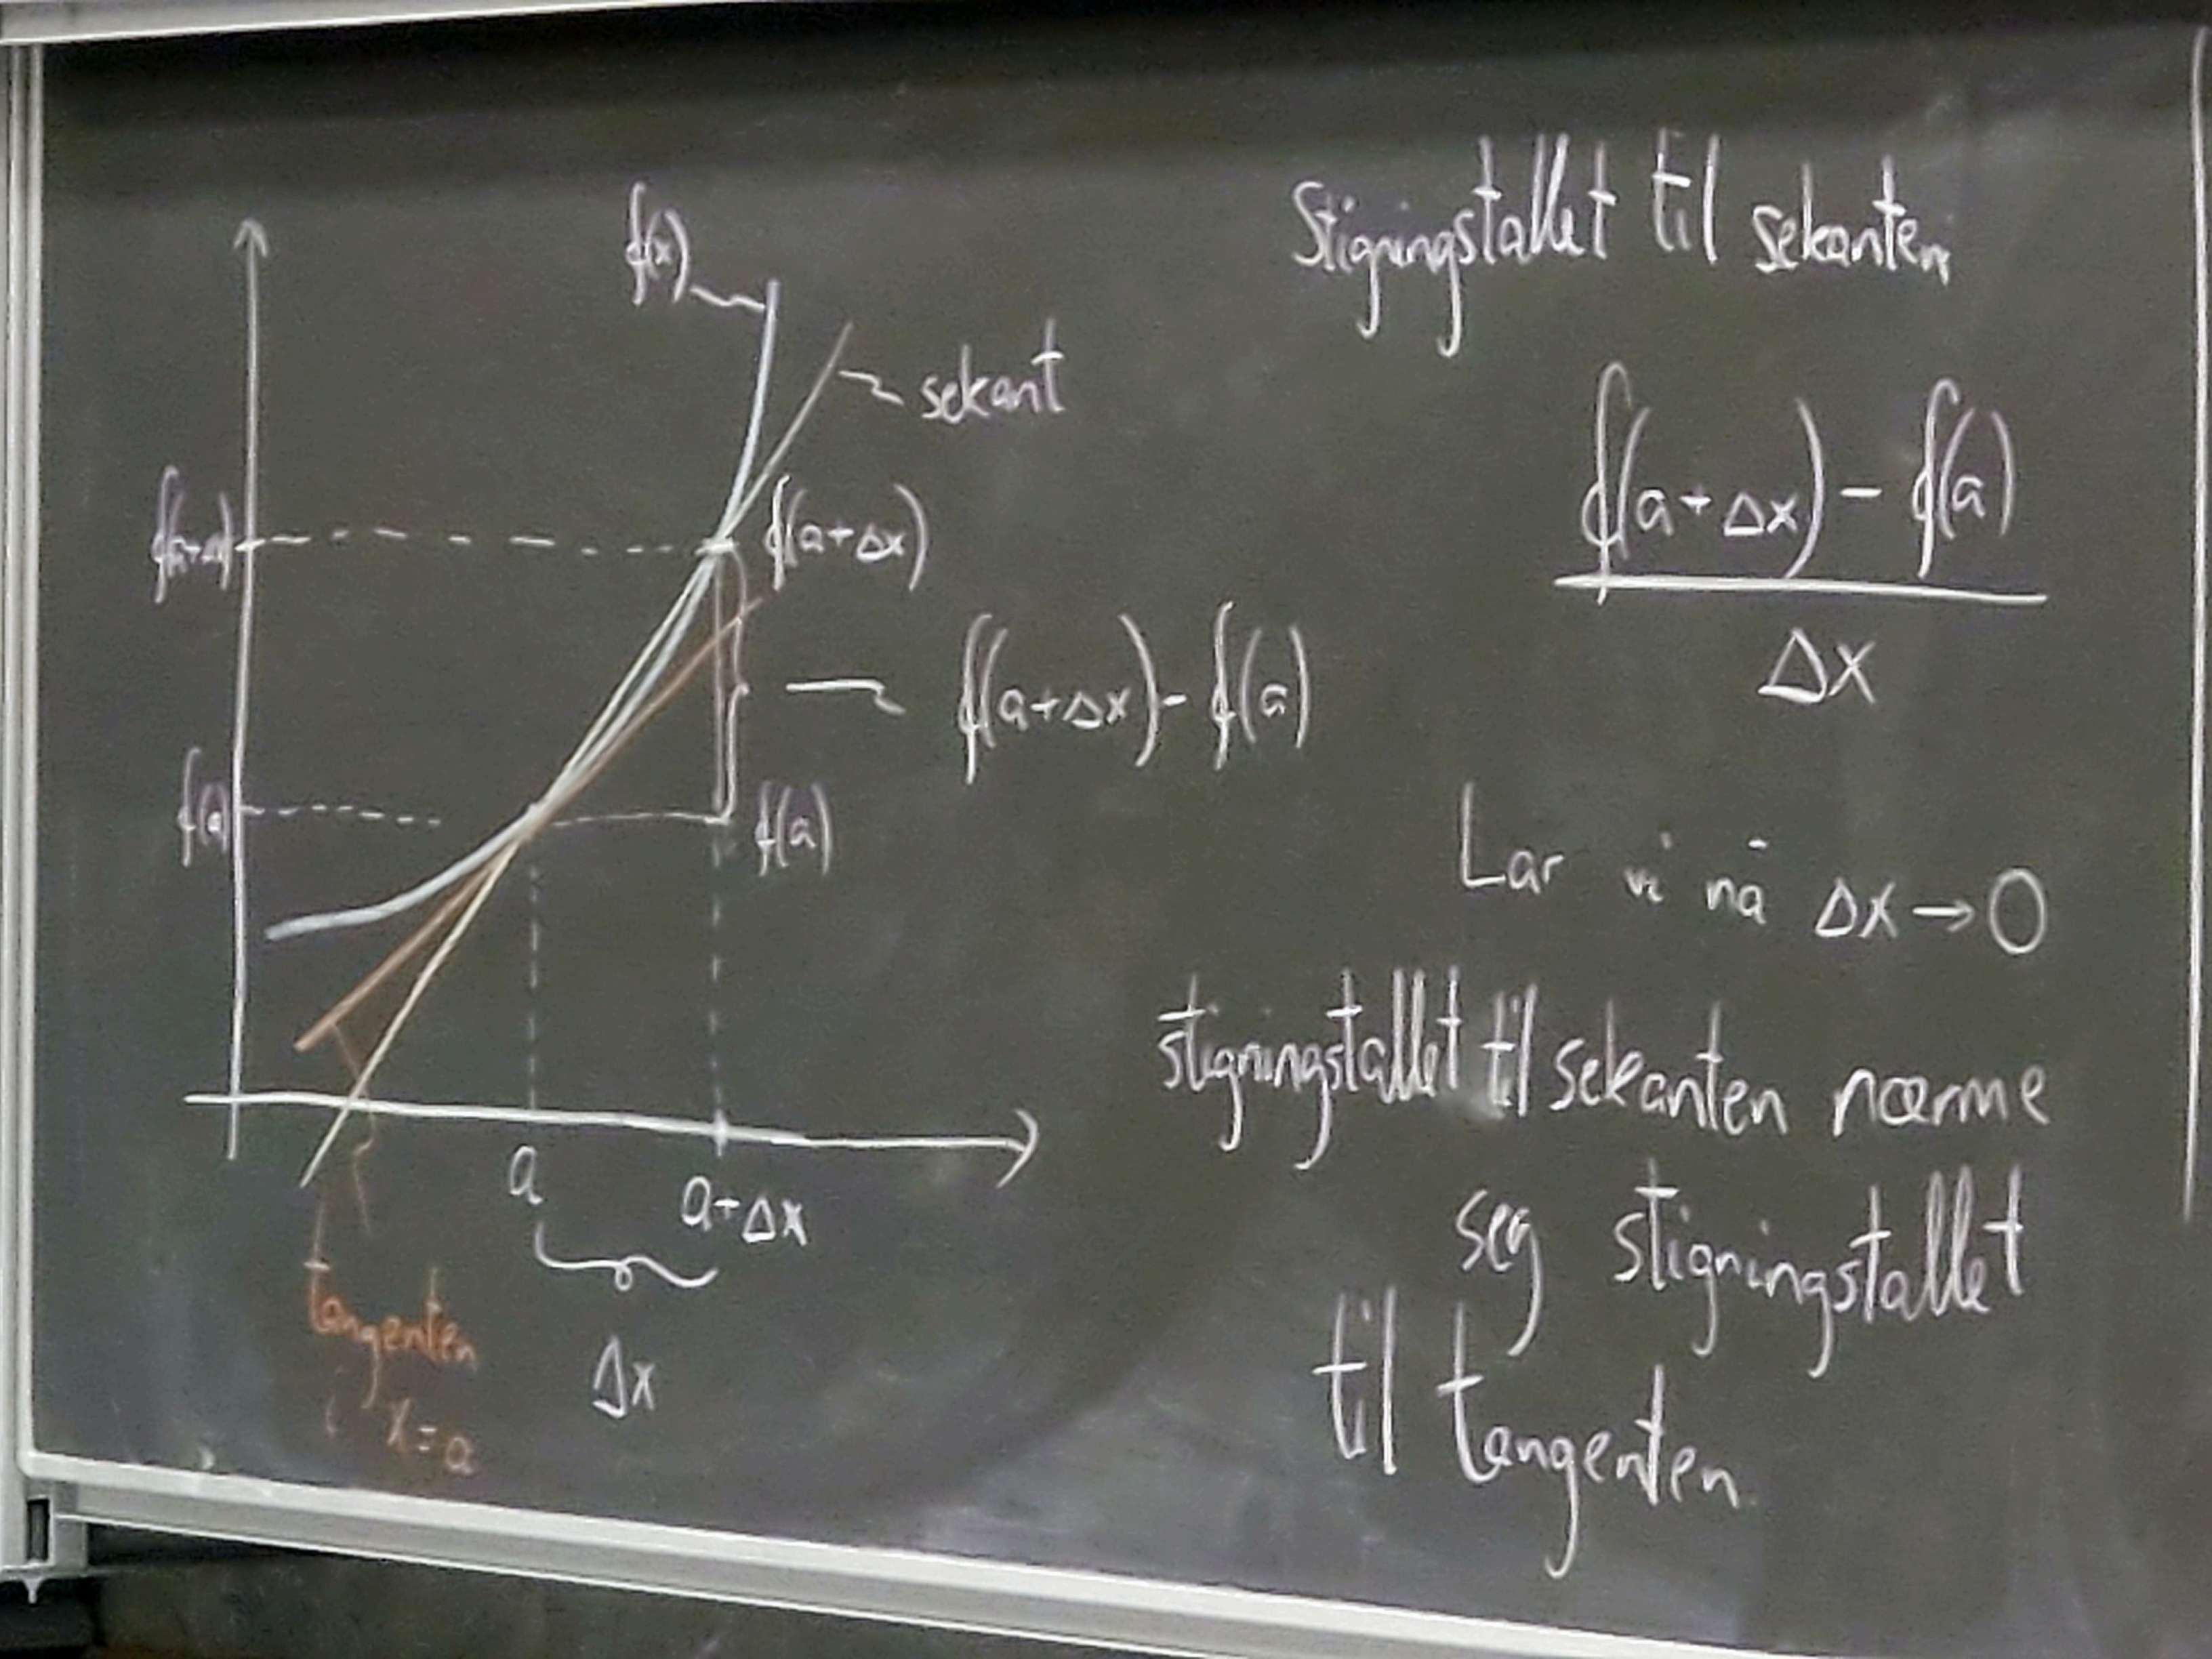 f(x)
sekant
f(a+Δx)
f(a+Δx)
f(a+Δx) - f(a)
f(a)
f(a)
a
a+Δx
Δx
tangenten
i x=a
Stigningstallet til sekanten
f(a+Δx) - f(a)
Δx
Lar vi nå Δx→0
stigningstallet til sekanten nærme
seg stigningstallet
til tangenten